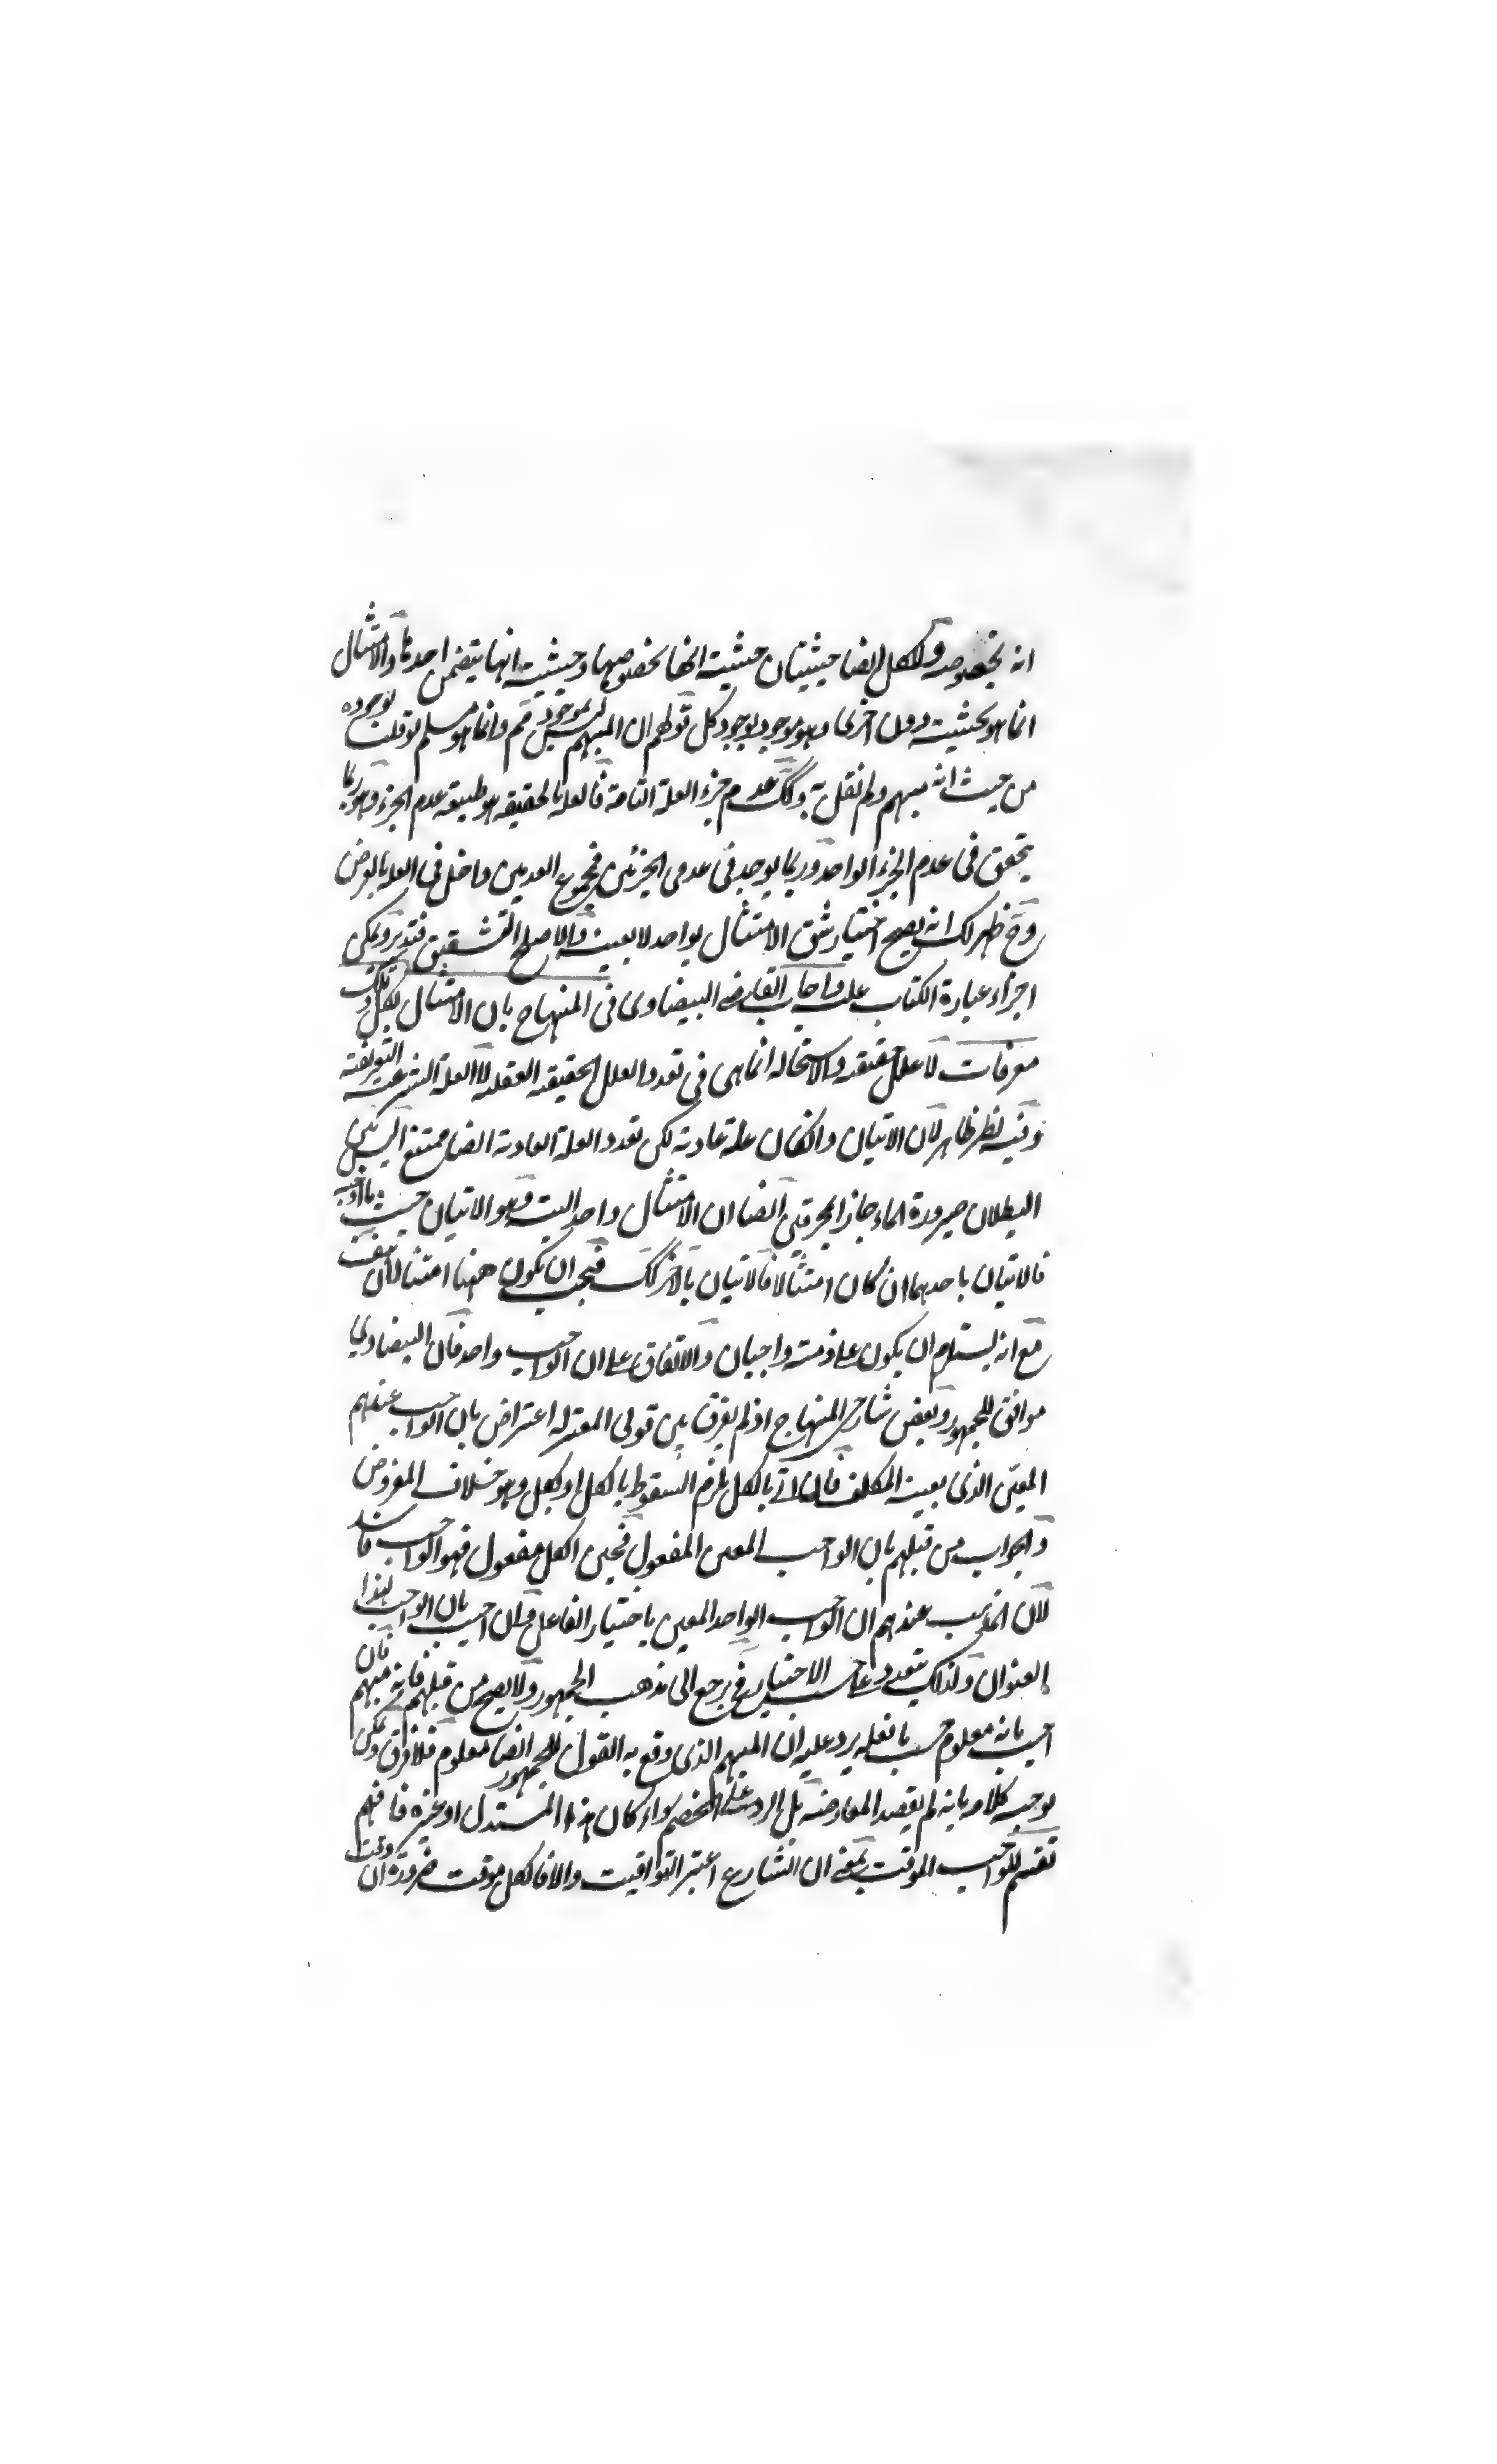 انه بخصوصه ولكل ايضا حيثيتان حيثية انها بخصوصها وحيثية انها يتضمن احدها والامتثال
انما هو بحيثية دون اخرى وهو موجود بوجود كل قولهم ان المبهم ليس بموجود قلنا مم وانما هو مسلم لو قلت بوجوده
من حيث انه مبهم ولم نقل به وكك عدم جزء العلة التامة فالعلة بالحقيقة هو طبيعة عدم الجزء وهو ربما
يتحقق في عدم الجزء الواحد وربما يوجد في عدمي الجزئين فمجموع العدمين داخل في العلة بالعرض
وح ظهر لك انه يصح اختيار شق الامتثال بواحد لا بعينه والاصلح التشقيق فتدبر ويمكن
اجراء عبارة الكتاب عليه واجاب القاضي البيضاوي في المنهاج بان الامتثال بكل وتلك
معرفات لا علل حقيقة والاستحالة انما هي في تعدد العلل الحقيقية العقلية لا العلة الشرعية التعريفية
وفيه نظر ظاهر لان الاتيان وانكان علة عادية لكن تعدد العلة العادية ايضا ممتنع اليس بين
البطلان صيرورة الماء حارا بحرقتين ايضا ان الامتثال واحد البتة وهو الاتيان حيث بالواجب
فالاتيان باحدهما ان كان امتثالا فالاتيان بالاخر كك فيجب ان يكون ههنا امتثالان هف
مع انه يستلزم ان يكون على ذمته واجبان والاتفاق على ان الواجب واحد فان البيضاوي
موافق للجمهور وبعض شارحي المنهاج اذ لم يفرق بين قولي المعتزلة اعترض بان الواجب عندهم
المعين الذي يعينه المكلف فان اتى بالكل يلزم السقوط بالكل او بكل وهو خلاف المفروض
والجواب من قبلهم بان الواجب المعين المفعول فحين الكل مفعول فهو الواجب فاسد
لان المذهب عندهم ان الواجب الواحد المعين باختيار الفاعل وان اجيب بان الواجب لهذا
العنوان ولذلك يتعدد على حسب الاختيار فح يرجع الى مذهب الجمهور ولا يصح من قبلهم فانه مبهم فان
اجيب بانه معلوم حسب ما نعلمه يرد عليه ان المبهم الذي وقع به القول للجمهور ايضا معلوم فلا فرق ويمكن
توجيه كلامه بانه لم يقصد المعارضة بل الرد على الخصم سواء كان هذا المستدل او غيره فافهم
تقسيم للواجب الموقت بمعنى ان الشارع اعتبر التواقيت والا فالكل موقت ضرورة ان وقت